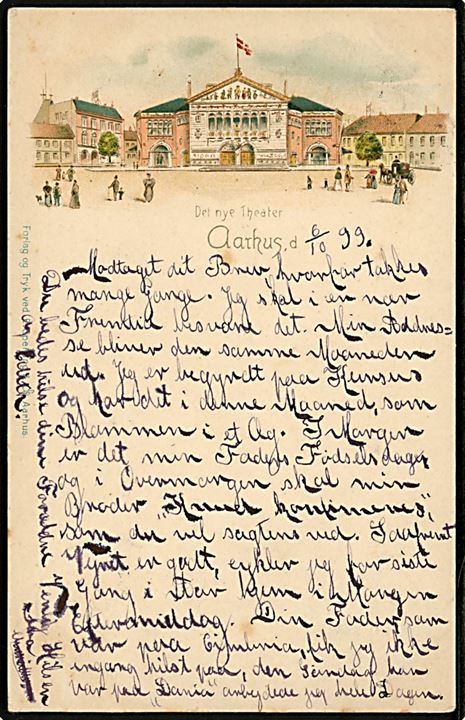 Det nye Theater
Aarhus, d 6/10 99.
Modtaget dit Brev, hvorfor takkes
mange Gange. Jeg skal i en nær
Fremtid besvare det. Min Address-
se bliver den samme Maaneden
ud. Jeg er begyndt paa Kursus
og har det i denne Maaned, som
Blommen i et Æg. I Morgen
er det min Faders Fødselsdag,
og i Overmorgen skal min
Broder "Knud konfimeres",
som du vel sagtens ved. Saafremt
Vejret er godt, cykler jeg for sidste
Gang i Aar hjem i Morgen
Eftermiddag. Din Fader, som
var paa fik jeg ikke
engang hilst paa, den Søndag han
var paa "Dania" arbejdede jeg hele Dagen.
Du bedes hilse dine Forældre
Venlig Hilsen
Forlag og Tryk ved Aarhus